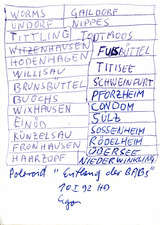 WORMS GAILDORF
UNDORF NIPPES
TITTLING TODTMOOS
WITZENHAUSEN FUßBÜTTEL
HODENHAGEN TITISEE
WILLISAU SCHWEINFURT
BRUNSBÜTTEL PFORZHEIM
BUOCHS CONDOM
WIXHAUSEN SULZ
EINÖD SOSSENHEIM
KÜNZELSAU RÖDELHEIM
FRONHAUSEN ÜBERSEE
HAARZOPF NIEDERWINKLING
Polaroid "Entlang der BABs"
10 I 92 HD